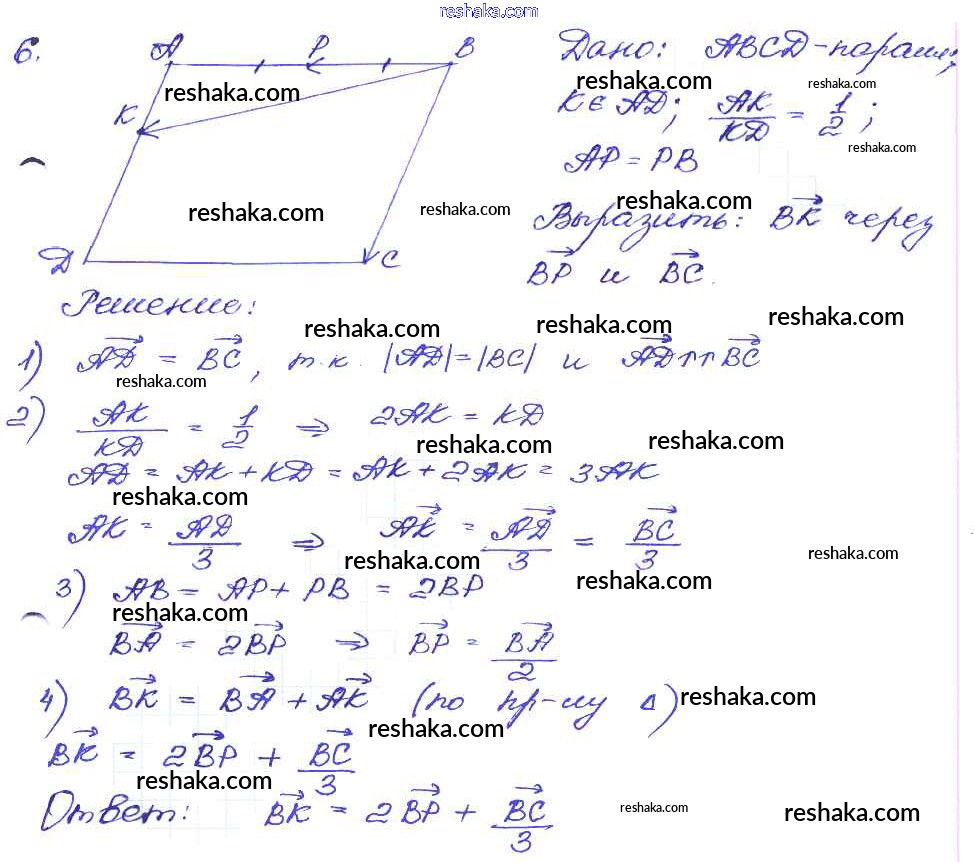 reshaka.com
6. A P B Дано: ABCD-паралл;
reshaka.com reshaka.com reshaka.com
K K ∈ AD; AK/KD = 1/2;
reshaka.com
AP = PB
reshaka.com reshaka.com reshaka.com
Выразить: BK через
D C BP и BC.
Решение:
reshaka.com reshaka.com reshaka.com
1) AD = BC, т.к. |AD|=|BC| и AD↑↑BC
reshaka.com
2) AK/KD = 1/2 ⇒ 2AK = KD
reshaka.com reshaka.com
AD = AK + KD = AK + 2AK = 3AK
reshaka.com
AK = AD/3 ⇒ AK = AD/3 = BC/3
reshaka.com reshaka.com reshaka.com
3) AB = AP + PB = 2BP
reshaka.com
BA = 2BP ⇒ BP = BA/2
4) BK = BA + AK (по пр-лу Δ)
reshaka.com reshaka.com
BK = 2BP + BC/3
reshaka.com
Ответ: BK = 2BP + BC/3
reshaka.com reshaka.com